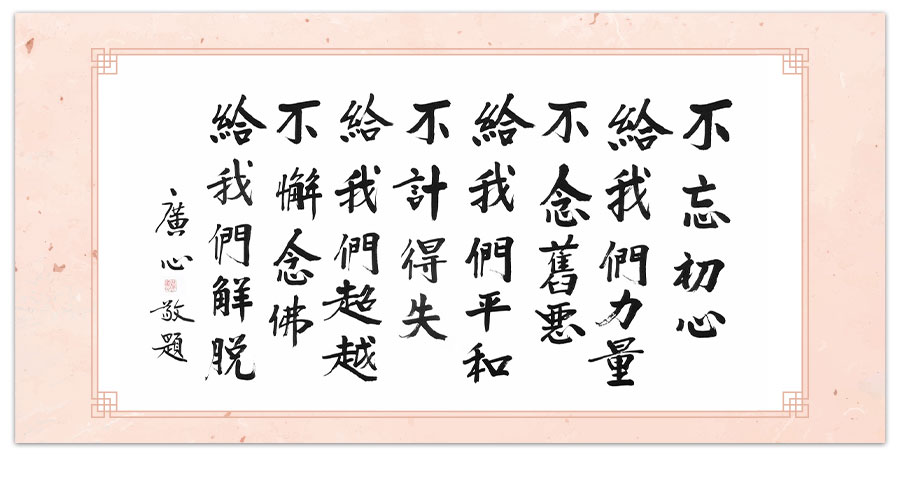 不忘初心
給我們力量
不念舊惡
給我們平和
不計得失
給我們超越
不懈念佛
給我們解脫
廣心敬題